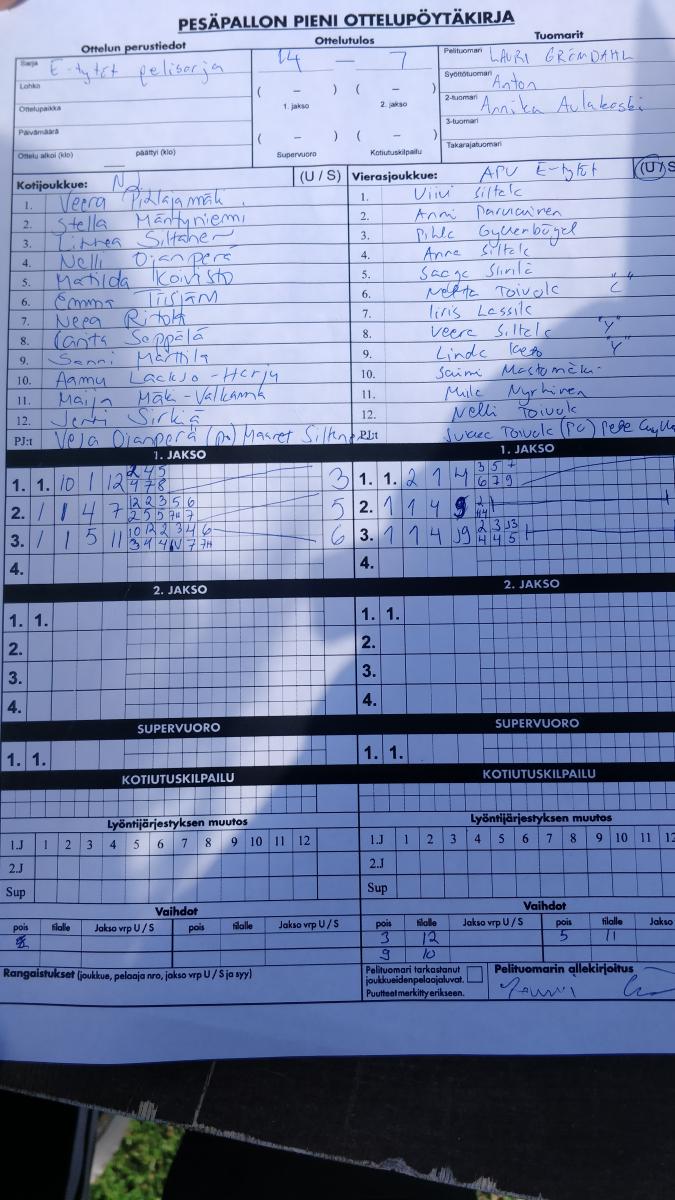 PESÄPALLON PIENI OTTELUPÖYTÄKIRJA
Ottelun perustiedot
Sarja E-tytöt pelisarja
Lohko
Ottelupaikka
Päivämäärä
Ottelu alkoi (klo) päättyi (klo)
Ottelutulos
14 - 7
( - ) ( - )
1. jakso 2. jakso
( - ) ( - )
Supervuoro Kotiutuskilpailu
Tuomarit
Pelituomari LAURI
Syöttötuomari Anton
2-tuomari Annika Aulakoski
3-tuomari
Takarajatuomari
Kotijoukkue: (U / S)
1. Veera Pihlajamäki
2. Stella Mäntyniemi
3. Linnea Siltanen
4. Nelli Ojanperä
5. Matilda Koivisto
6. Emma
7. Neea
8. Seppälä
9. Sanni Marttila
10. Aamu Laakso-Harju
11. Maija Mäki-Valkama
12. Jenni Sirkiä
PJ:t Veja Ojanperä (pv) Maaret
Vierasjoukkue: APV E-tytöt (U / S)
1. Viivi Siltala
2. Anni
3. Pihla
4. Anna Siltala
5. Saaga
6. Toivola "C"
7. Iiris Lassila
8. Veera Siltala "Y"
9. Linda "Y"
10. Saimi
11. Nyrhinen
12. Nelli Toivola
PJ:t Toivola
1. JAKSO
1. 1. 10 1 12 2 4 5 3
4 7 8
2. 1 1 4 7 12 2 3 5 6 5
3. 1 1 5 11 10 12 2 3 4 6 6
4.
2. JAKSO
1. 1.
2.
3.
4.
SUPERVUORO
1. 1.
KOTIUTUSKILPAILU
Lyöntijärjestyksen muutos
1.J 1 2 3 4 5 6 7 8 9 10 11 12
2.J
Sup
Vaihdot
pois tilalle Jakso vrp U / S pois tilalle Jakso vrp U / S
Rangaistukset (joukkue, pelaaja nro, jakso vrp U / S ja syy)
1. JAKSO
1. 1. 2 1 4 3 5
6 7 9
2. 1 1 4 9 2
3. 1 1 4 2 3
4 4 5
4.
2. JAKSO
1. 1.
2.
3.
4.
SUPERVUORO
1. 1.
KOTIUTUSKILPAILU
Lyöntijärjestyksen muutos
1.J 1 2 3 4 5 6 7 8 9 10 11 12
2.J
Sup
Vaihdot
pois tilalle Jakso vrp U / S pois tilalle Jakso
3 12 5 11
9 10
Pelituomari tarkastanut
joukkueidenpelaajaluvat.
Puutteet merkitty erikseen.
Pelituomarin allekirjoitus